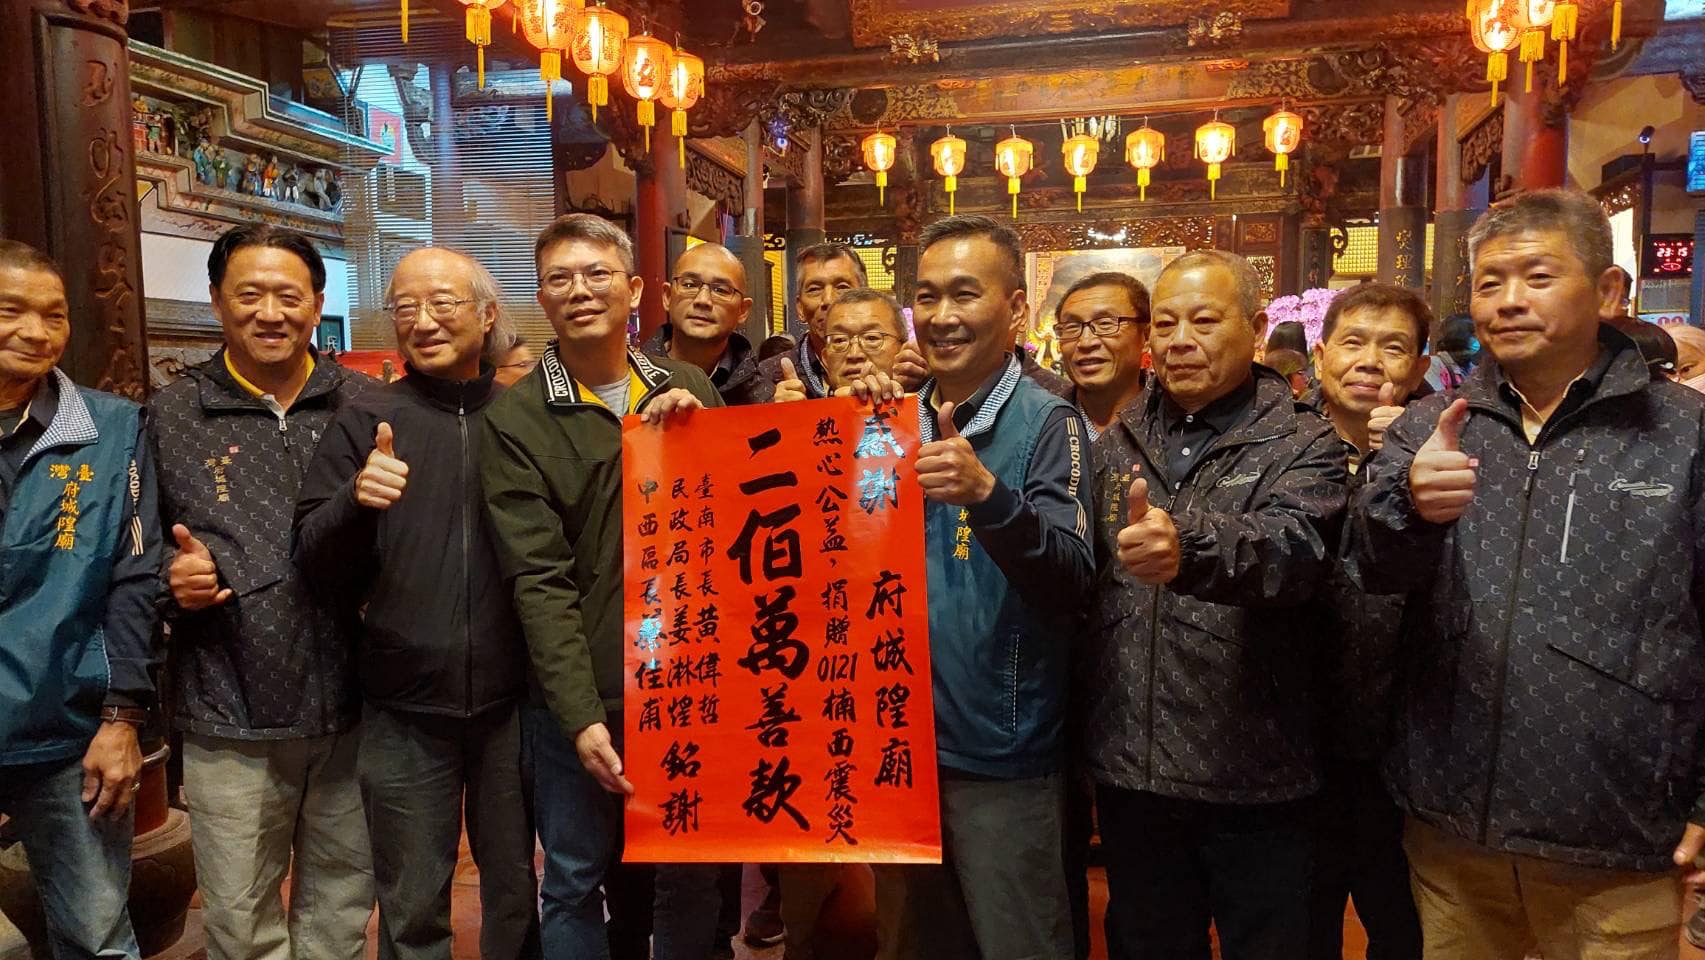 感謝 府城隍廟
熱心公益，捐贈0121楠西震災
二佰萬善款
臺南市長黃偉哲
民政局長姜淋煌 銘謝
中西區長佳甫
臺灣府城隍廟
城隍廟
CROCODILE
CROCODI
23:15
燮理陰